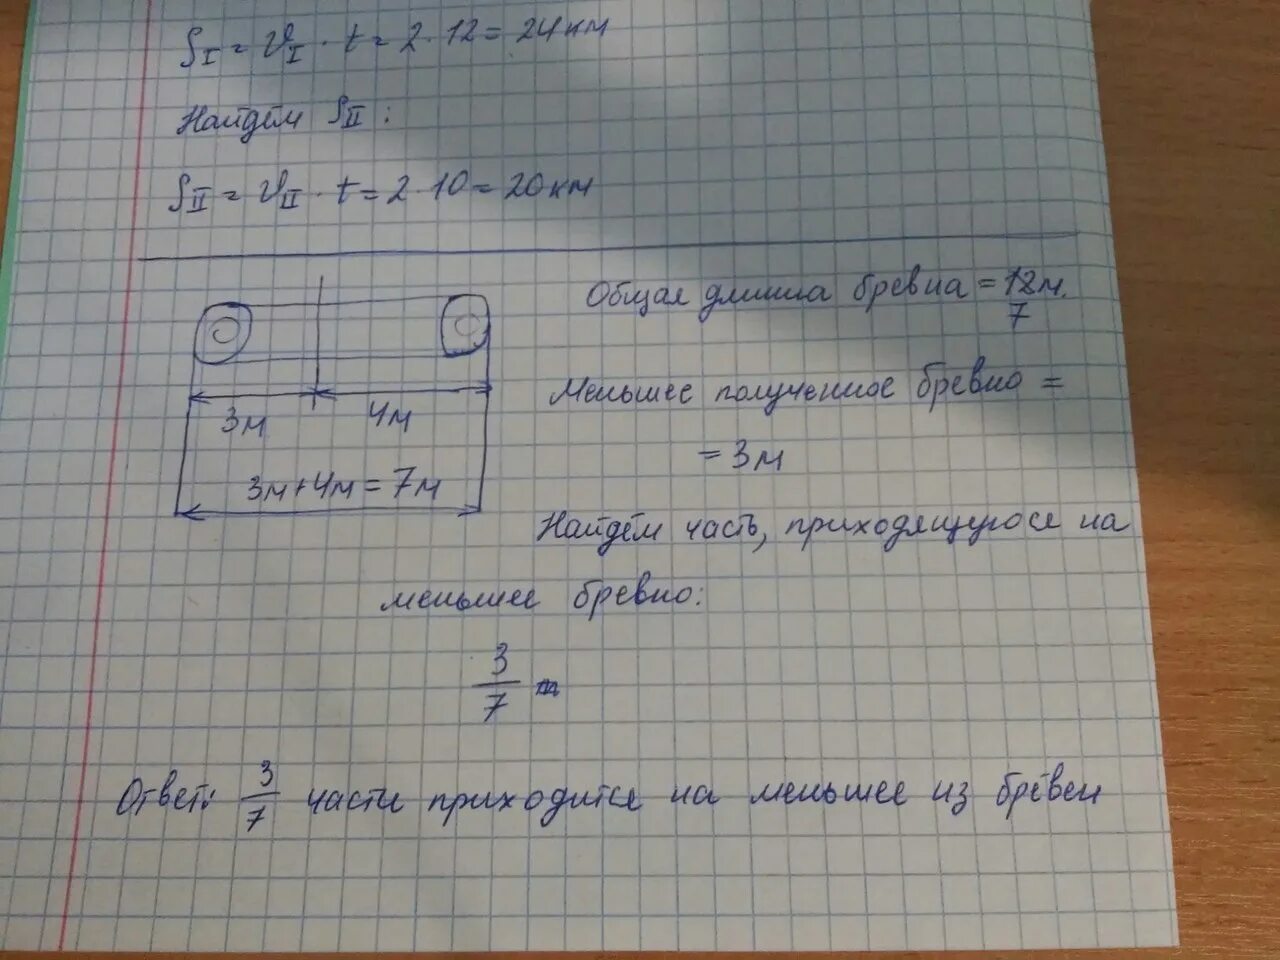 S_I = V_I · t = 2 · 12 = 24 км
Найдём S_II :
S_II = V_II · t = 2 · 10 = 20 км
3м 4м
3м + 4м = 7м
Общая длина бревна = 12м.
7
Меньшее полученное бревно =
= 3м
Найдём часть, приходящуюся на
меньшее бревно:
3/7
Ответ: 3/7 части приходится на меньшее из брёвен